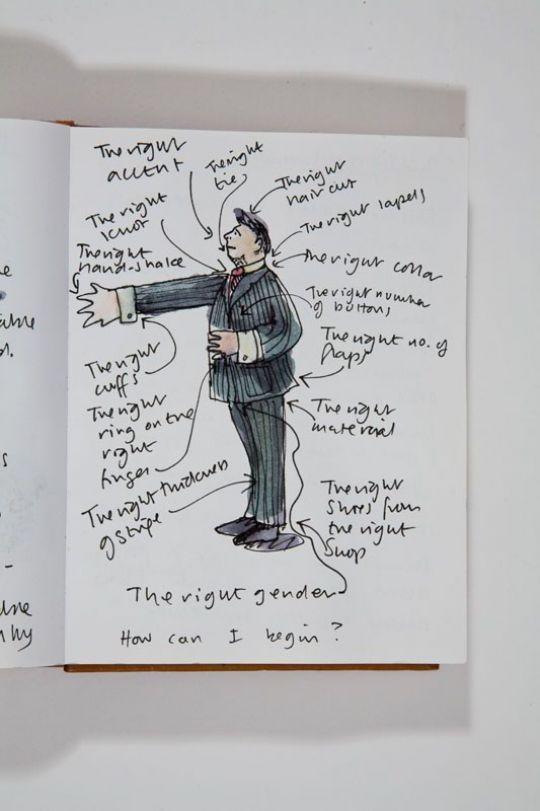 The right
accent
The right
tie
The right
haircut
The right
knot
The right lapels
The right
hand-shake
The right collar
The right number
of buttons
The right no. of
flaps
The right
cuffs
The right
material
The right
ring on the
right
finger
The right thickness
of stripe
The right
shoes from
the right
shop
The right gender
How can I begin?